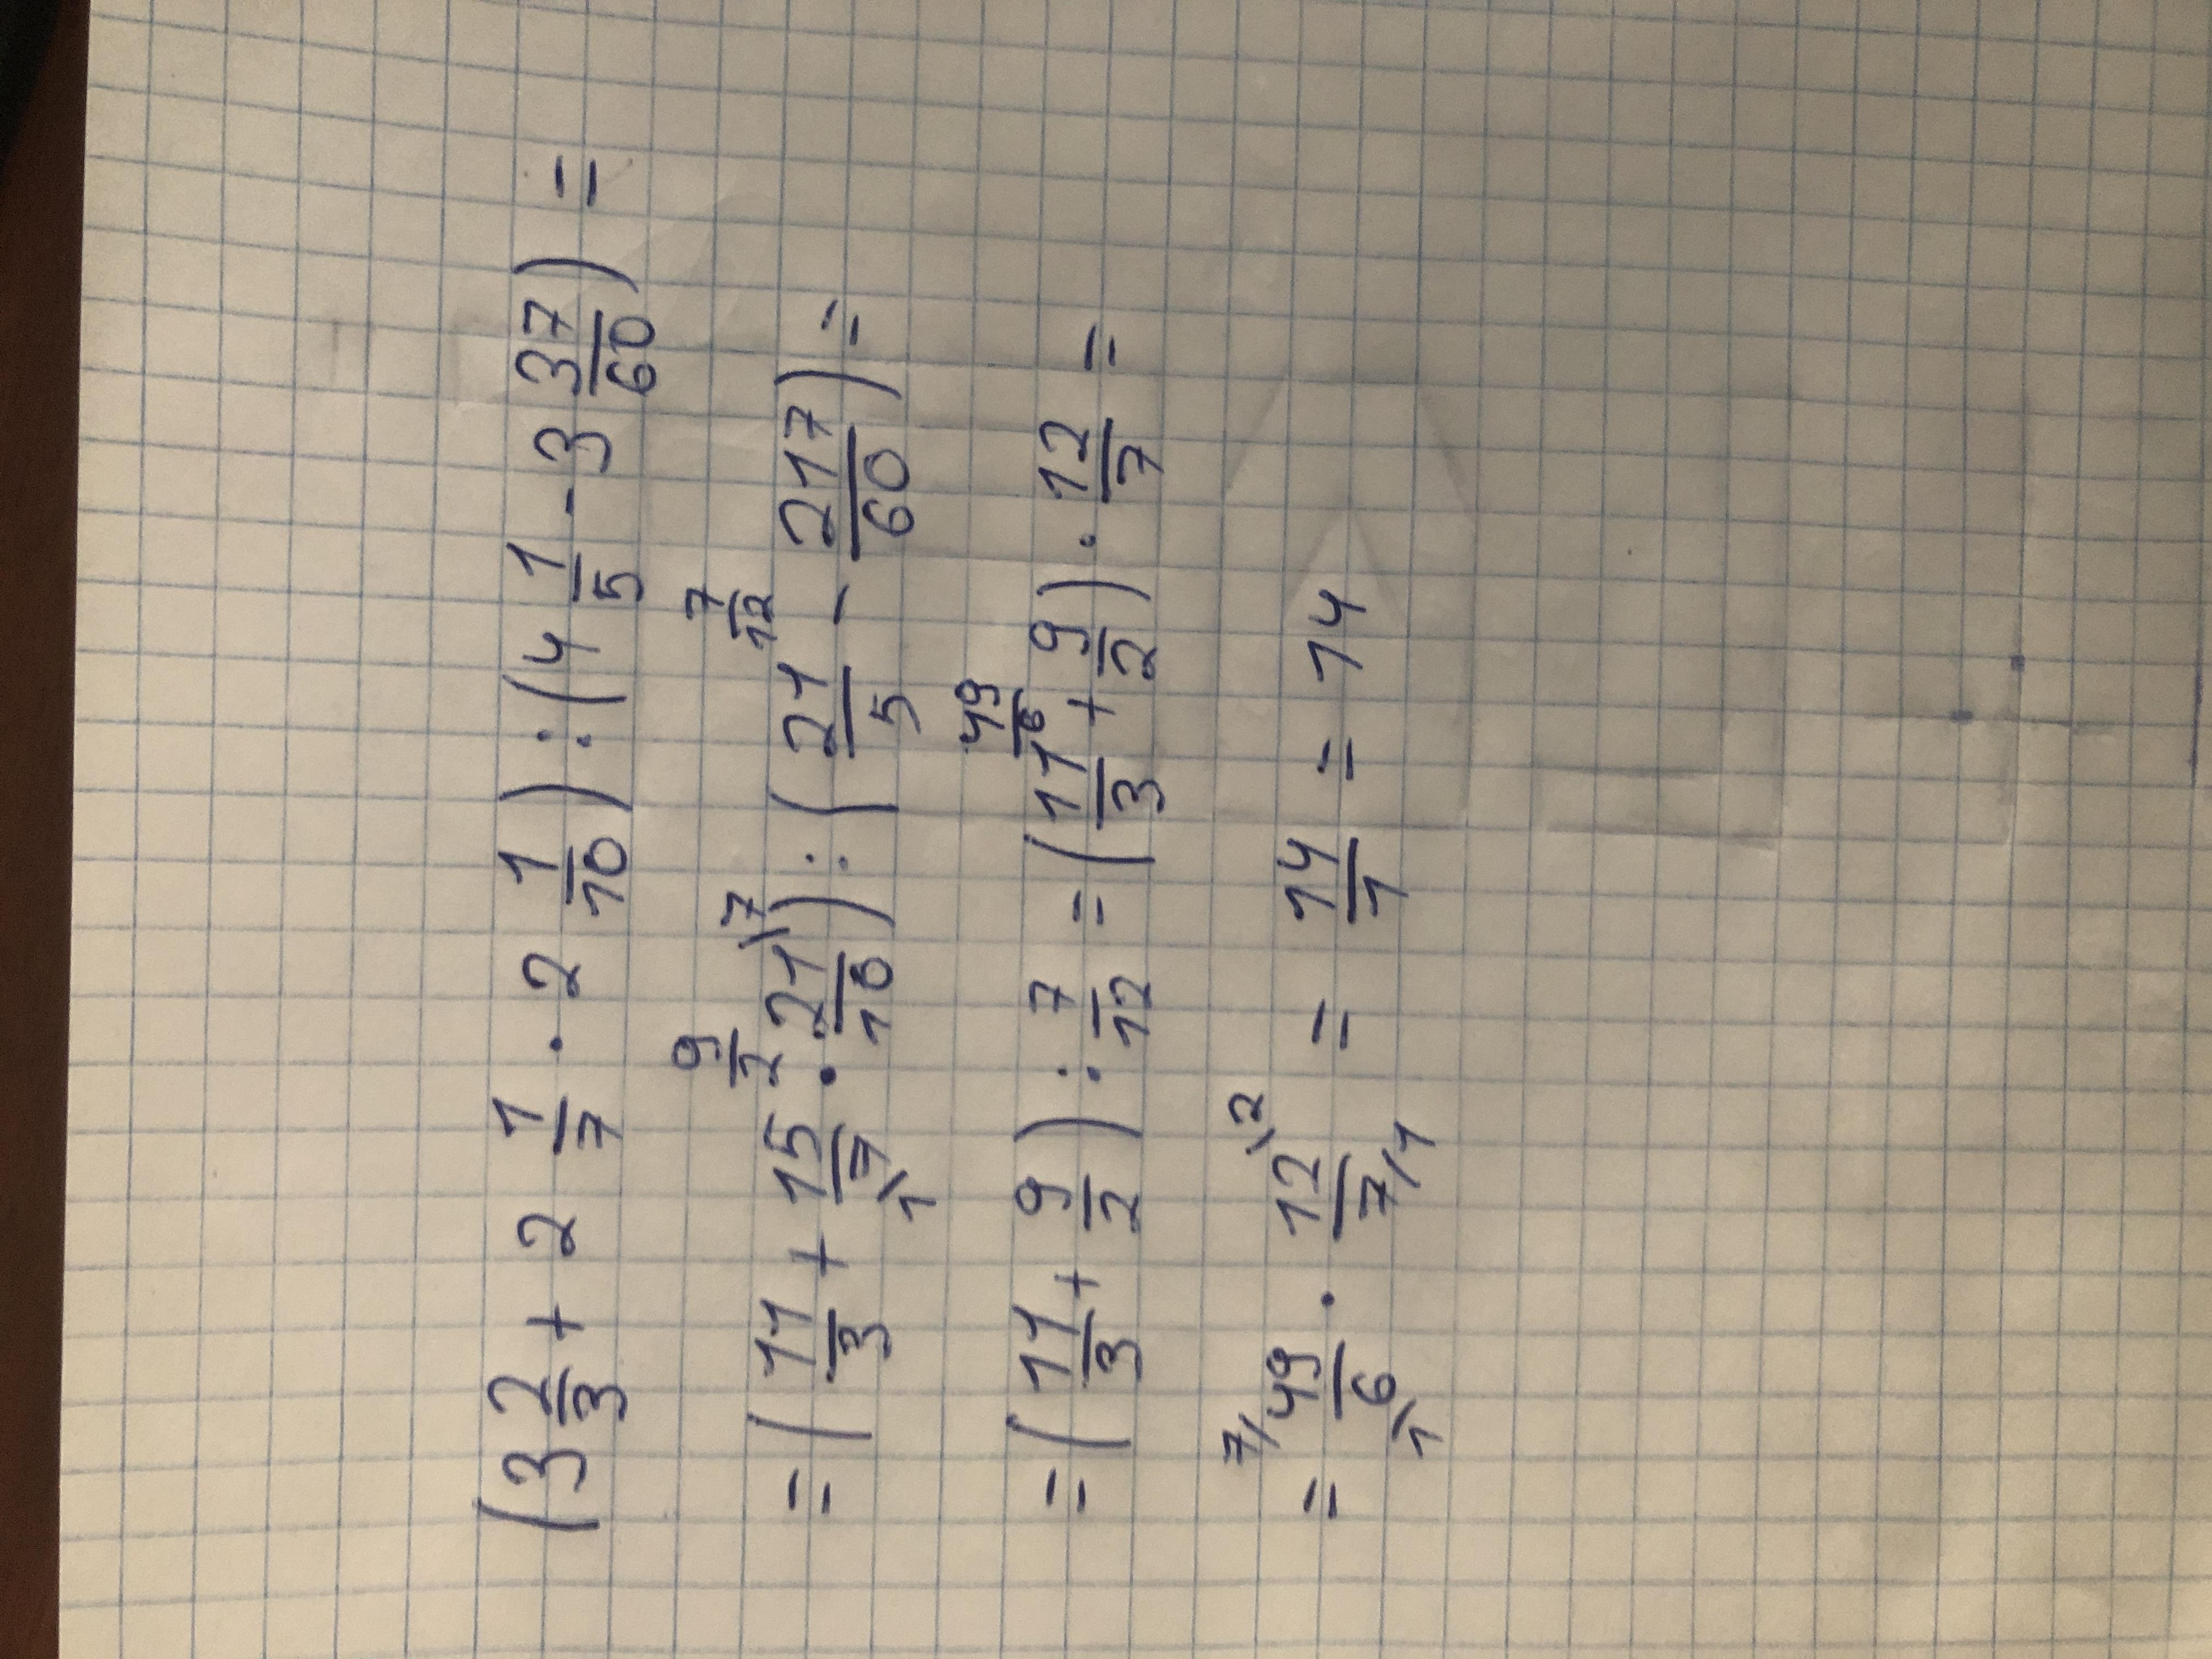 (3 2/3 + 2 1/7 · 2 1/10) : (4 1/5 - 3 37/60) =
9/2 7/12
= (11/3 + 15/7\1 · 21\7/10) : (21/5 - 217/60) =
49/6
= (11/3 + 9/2) : 7/12 = (11/3 + 9/2) · 12/7 =
= 7/49/6\1 · 12\2/7/1 = 14/1 = 14